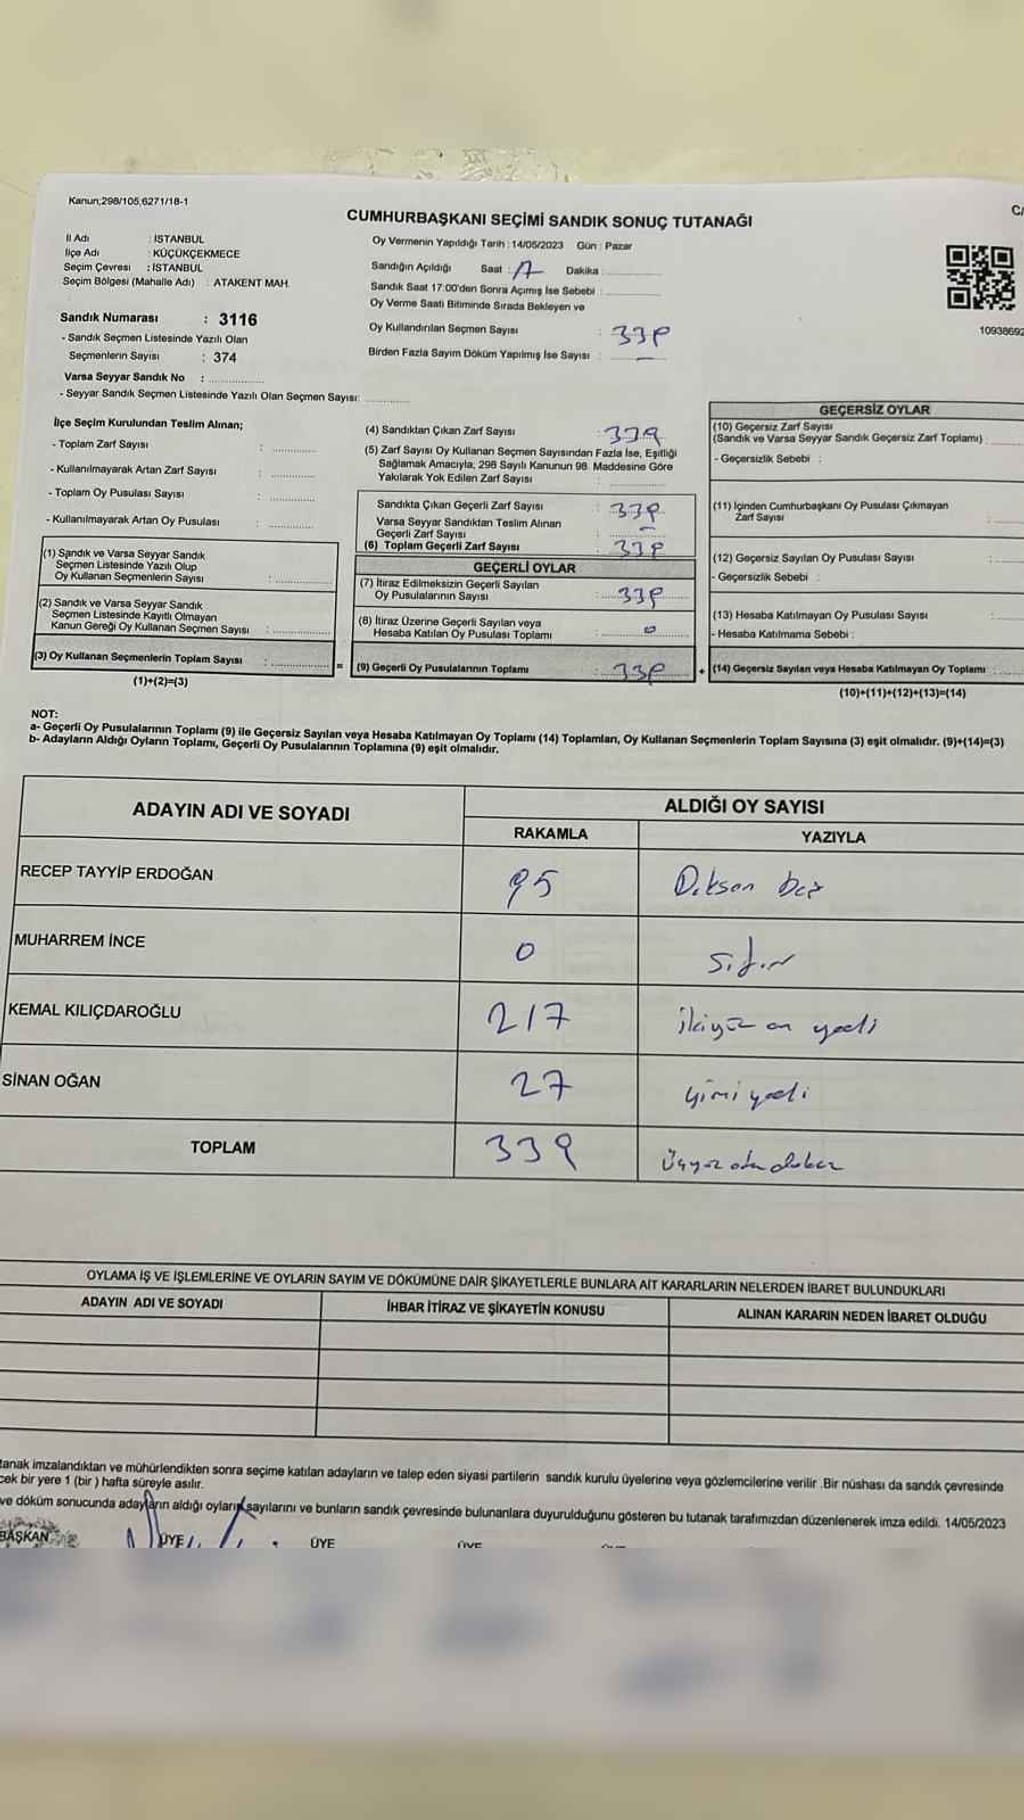 Kanun;298/105,6271/18-1
CUMHURBAŞKANI SEÇİMİ SANDIK SONUÇ TUTANAĞI
İl Adı : İSTANBUL
İlçe Adı : KÜÇÜKÇEKMECE
Seçim Çevresi : İSTANBUL
Seçim Bölgesi (Mahalle Adı) : ATAKENT MAH.
Sandık Numarası : 3116
- Sandık Seçmen Listesinde Yazılı Olan
Seçmenlerin Sayısı : 374
Varsa Seyyar Sandık No :
- Seyyar Sandık Seçmen Listesinde Yazılı Olan Seçmen Sayısı:
Oy Vermenin Yapıldığı Tarih : 14/05/2023 Gün : Pazar
Sandığın Açıldığı Saat : 17 Dakika :
Sandık Saat 17:00'den Sonra Açımış İse Sebebi :
Oy Verme Saati Bitiminde Sırada Bekleyen ve
Oy Kullandırılan Seçmen Sayısı : 339
Birden Fazla Sayım Döküm Yapılmış İse Sayısı : —
10938692
İlçe Seçim Kurulundan Teslim Alınan;
- Toplam Zarf Sayısı :
- Kullanılmayarak Artan Zarf Sayısı :
- Toplam Oy Pusulası Sayısı :
- Kullanılmayarak Artan Oy Pusulası :
(1) Sandık ve Varsa Seyyar Sandık
Seçmen Listesinde Yazılı Olup
Oy Kullanan Seçmenlerin Sayısı :
(2) Sandık ve Varsa Seyyar Sandık
Seçmen Listesinde Kayıtlı Olmayan
Kanun Gereği Oy Kullanan Seçmen Sayısı :
(3) Oy Kullanan Seçmenlerin Toplam Sayısı : =
(1)+(2)=(3)
(4) Sandıktan Çıkan Zarf Sayısı : 339
(5) Zarf Sayısı Oy Kullanan Seçmen Sayısından Fazla İse, Eşitliği
Sağlamak Amacıyla; 298 Sayılı Kanunun 98. Maddesine Göre
Yakılarak Yok Edilen Zarf Sayısı :
Sandıkta Çıkan Geçerli Zarf Sayısı : 339
Varsa Seyyar Sandıktan Teslim Alınan
Geçerli Zarf Sayısı : —
(6) Toplam Geçerli Zarf Sayısı : 339
GEÇERLİ OYLAR
(7) İtiraz Edilmeksizin Geçerli Sayılan
Oy Pusulalarının Sayısı : 339
(8) İtiraz Üzerine Geçerli Sayılan veya
Hesaba Katılan Oy Pusulası Toplamı : 0
(9) Geçerli Oy Pusulalarının Toplamı : 339 +
GEÇERSİZ OYLAR
(10) Geçersiz Zarf Sayısı
(Sandık ve Varsa Seyyar Sandık Geçersiz Zarf Toplamı)
- Geçersizlik Sebebi :
(11) İçinden Cumhurbaşkanı Oy Pusulası Çıkmayan
Zarf Sayısı :
(12) Geçersiz Sayılan Oy Pusulası Sayısı :
- Geçersizlik Sebebi :
(13) Hesaba Katılmayan Oy Pusulası Sayısı :
- Hesaba Katılmama Sebebi :
(14) Geçersiz Sayılan veya Hesaba Katılmayan Oy Toplamı :
(10)+(11)+(12)+(13)=(14)
NOT:
a- Geçerli Oy Pusulalarının Toplamı (9) ile Geçersiz Sayılan veya Hesaba Katılmayan Oy Toplamı (14) Toplamları, Oy Kullanan Seçmenlerin Toplam Sayısına (3) eşit olmalıdır. (9)+(14)=(3)
b- Adayların Aldığı Oyların Toplamı, Geçerli Oy Pusulalarının Toplamına (9) eşit olmalıdır.
ADAYIN ADI VE SOYADI ALDIĞI OY SAYISI
RAKAMLA YAZIYLA
RECEP TAYYİP ERDOĞAN 95 Doksan beş
MUHARREM İNCE 0 Sıfır
KEMAL KILIÇDAROĞLU 217 ikiyüz on yedi
SİNAN OĞAN 27 yirmi yedi
TOPLAM 339 Üçyüz otuz dokuz
OYLAMA İŞ VE İŞLEMLERİNE VE OYLARIN SAYIM VE DÖKÜMÜNE DAİR ŞİKAYETLERLE BUNLARA AİT KARARLARIN NELERDEN İBARET BULUNDUKLARI
ADAYIN ADI VE SOYADI İHBAR İTİRAZ VE ŞİKAYETİN KONUSU ALINAN KARARIN NEDEN İBARET OLDUĞU
tanak imzalandıktan ve mühürlendikten sonra seçime katılan adayların ve talep eden siyasi partilerin sandık kurulu üyelerine veya gözlemcilerine verilir .Bir nüshası da sandık çevresinde
cek bir yere 1 (bir ) hafta süreyle asılır.
ve döküm sonucunda adayların aldığı oyların sayılarını ve bunların sandık çevresinde bulunanlara duyurulduğunu gösteren bu tutanak tarafımızdan düzenlenerek imza edildi. 14/05/2023
BAŞKAN ÜYE ÜYE ÜYE